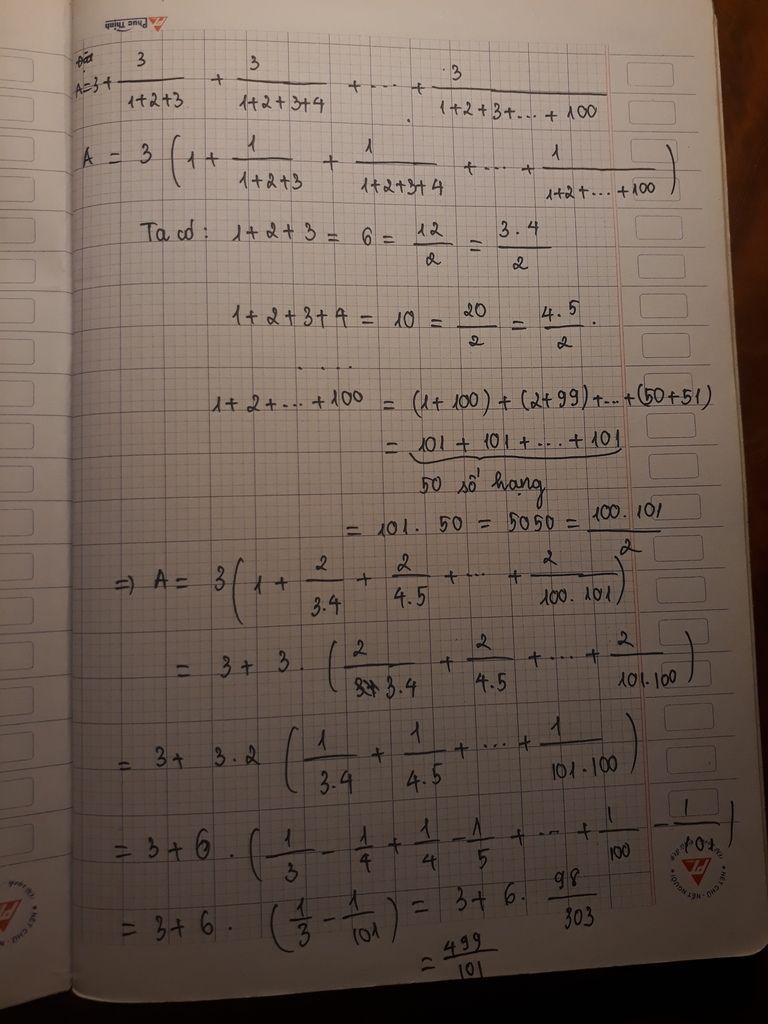 Phuc Thinh
Đặt
A=3+ 3/(1+2+3) + 3/(1+2+3+4) + ... + 3/(1+2+3+...+100)
A = 3 (1 + 1/(1+2+3) + 1/(1+2+3+4) + ... + 1/(1+2+...+100))
Ta có: 1+2+3 = 6 = 12/2 = 3.4/2
1+2+3+4 = 10 = 20/2 = 4.5/2.
....
1+2+...+100 = (1+100)+(2+99)+...+(50+51)
= 101 + 101 + ... + 101
50 số hạng
= 101. 50 = 5050 = 100.101/2
=> A = 3(1 + 2/3.4 + 2/4.5 + ... + 2/100.101)
= 3 + 3. (2/3.4 + 2/4.5 + ... + 2/101.100)
= 3 + 3.2 (1/3.4 + 1/4.5 + ... + 1/101.100)
= 3 + 6. (1/3 - 1/4 + 1/4 - 1/5 + ... + 1/100 - 1/101)
= 3 + 6. (1/3 - 1/101) = 3 + 6. 98/303
= 499/101
NÉT CHỮ - NẾT NGƯỜI